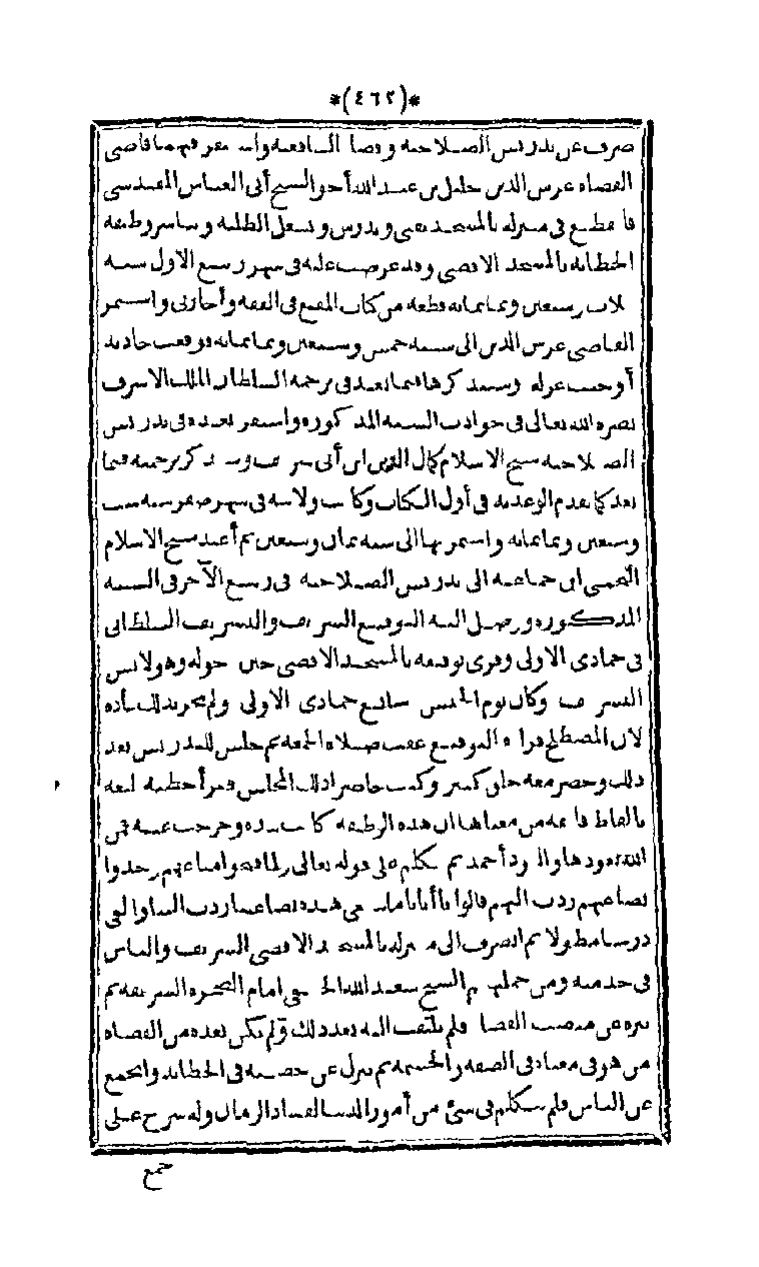 *(٤٦٢)*
صرف عن تدريس الصلاحية وقضاء الشافعية واستقر فيهما قاضي
القضاة غرس الدين خليل بن عبد الله أخو الشيخ أبي العباس المقدسي
فانقطع في منزله بالمسجد يفتي ويدرس ويشغل الطلبة ويباشر وظيفة
الخطابة بالمسجد الاقصى وقد عرضت عليه في شهر ربيع الاول سنة
ثلاث وسبعين وثمانمائة قطعة من كتاب المقنع في الفقه وأجازني واستمر
القاضي غرس الدين الى سنة خمس وسبعين وثمانمائة فوقعت حادثة
أوجبت عزله وسنذكرها فيما بعد في ترجمة السلطان الملك الاشرف
نصره الله تعالى في حوادث السنة المذكورة واستقر بعده في تدريس
الصلاحية شيخ الاسلام كمال الدين ابن أبي شريف وسنذكر ترجمته فيما
بعد كما تقدم الوعد به في أول الكتاب وكانت ولايته في شهر صفر سنة ست
وسبعين وثمانمائة واستمر بها الى سنة ثمان وسبعين ثم أعيد شيخ الاسلام
النجمي ابن جماعة الى تدريس الصلاحية في ربيع الآخر في السنة
المذكورة ووصل اليه التوقيع الشريف والتشريف السلطاني
في جمادى الاولى وقرئ توقيعه بالمسجد الاقصى حين دخوله وهو لابس
التشريف وكان يوم الخميس سابع جمادى الاولى ولم تجر بذلك عادة
لان المصطلح قراءة التوقيع عقب صلاة الجمعة ثم جلس للتدريس بعد
ذلك وحضر معه خلق كثير وكنت حاضرا ذلك المجلس فقرأ خطبة بليغة
بالفاظ فائقة من معناها ان هذه الوظيفة كانت بيده وخرجت عنه فمن
الله بعودها والعود أحمد ثم تكلم على قوله تعالى ولما فتحوا متاعهم وجدوا
بضاعتهم ردت اليهم قالوا يا أبانا ما نبغي هذه بضاعتنا ردت الينا وألقى
درسا مطولا ثم انصرف الى منزله بالمسجد الاقصى الشريف والناس
في خدمته ومن جملتهم الشيخ سعد الله الحنفي امام الصخرة الشريفة ثم
تنزه عن منصب القضاء فلم يلتفت اليه بعد ذلك ولم يكن بعده من القضاة
من هو في معناه في العفة والحشمة ثم نزل عن حصته في الخطابة وانجمع
عن الناس فلم يتكلم في شئ من أمور الدنيا لفساد الزمان وله شرح على
جمع